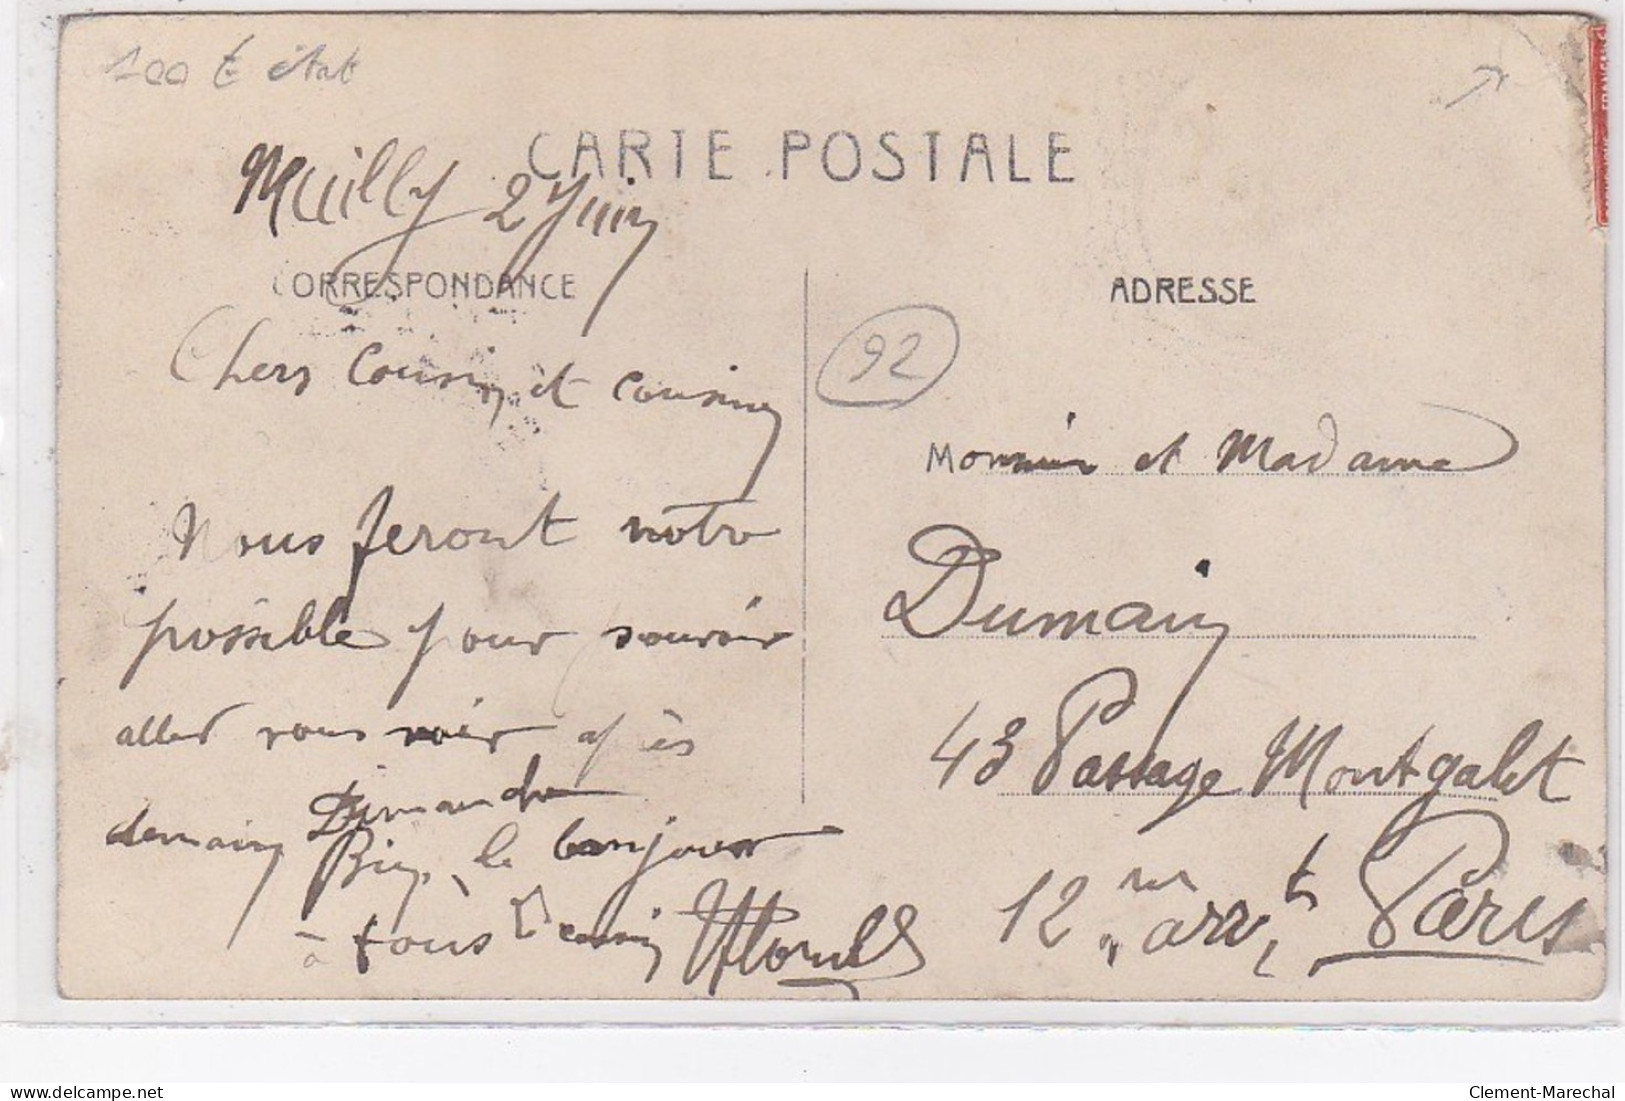 100 € état
CARTE POSTALE
Neuilly 2 Juin
CORRESPONDANCE
Chers Cousin et Cousine
Nous feront notre
possible pour pouvoir
aller vous voir après
demain Dimanche
Bien le bonjour
à tous
cousin
ADRESSE
92
Monsieur et Madame
Dumain
43 Passage Montgalet
12 me arr t Paris
FRANÇAISE
delcampe.net
Clement-Marechal